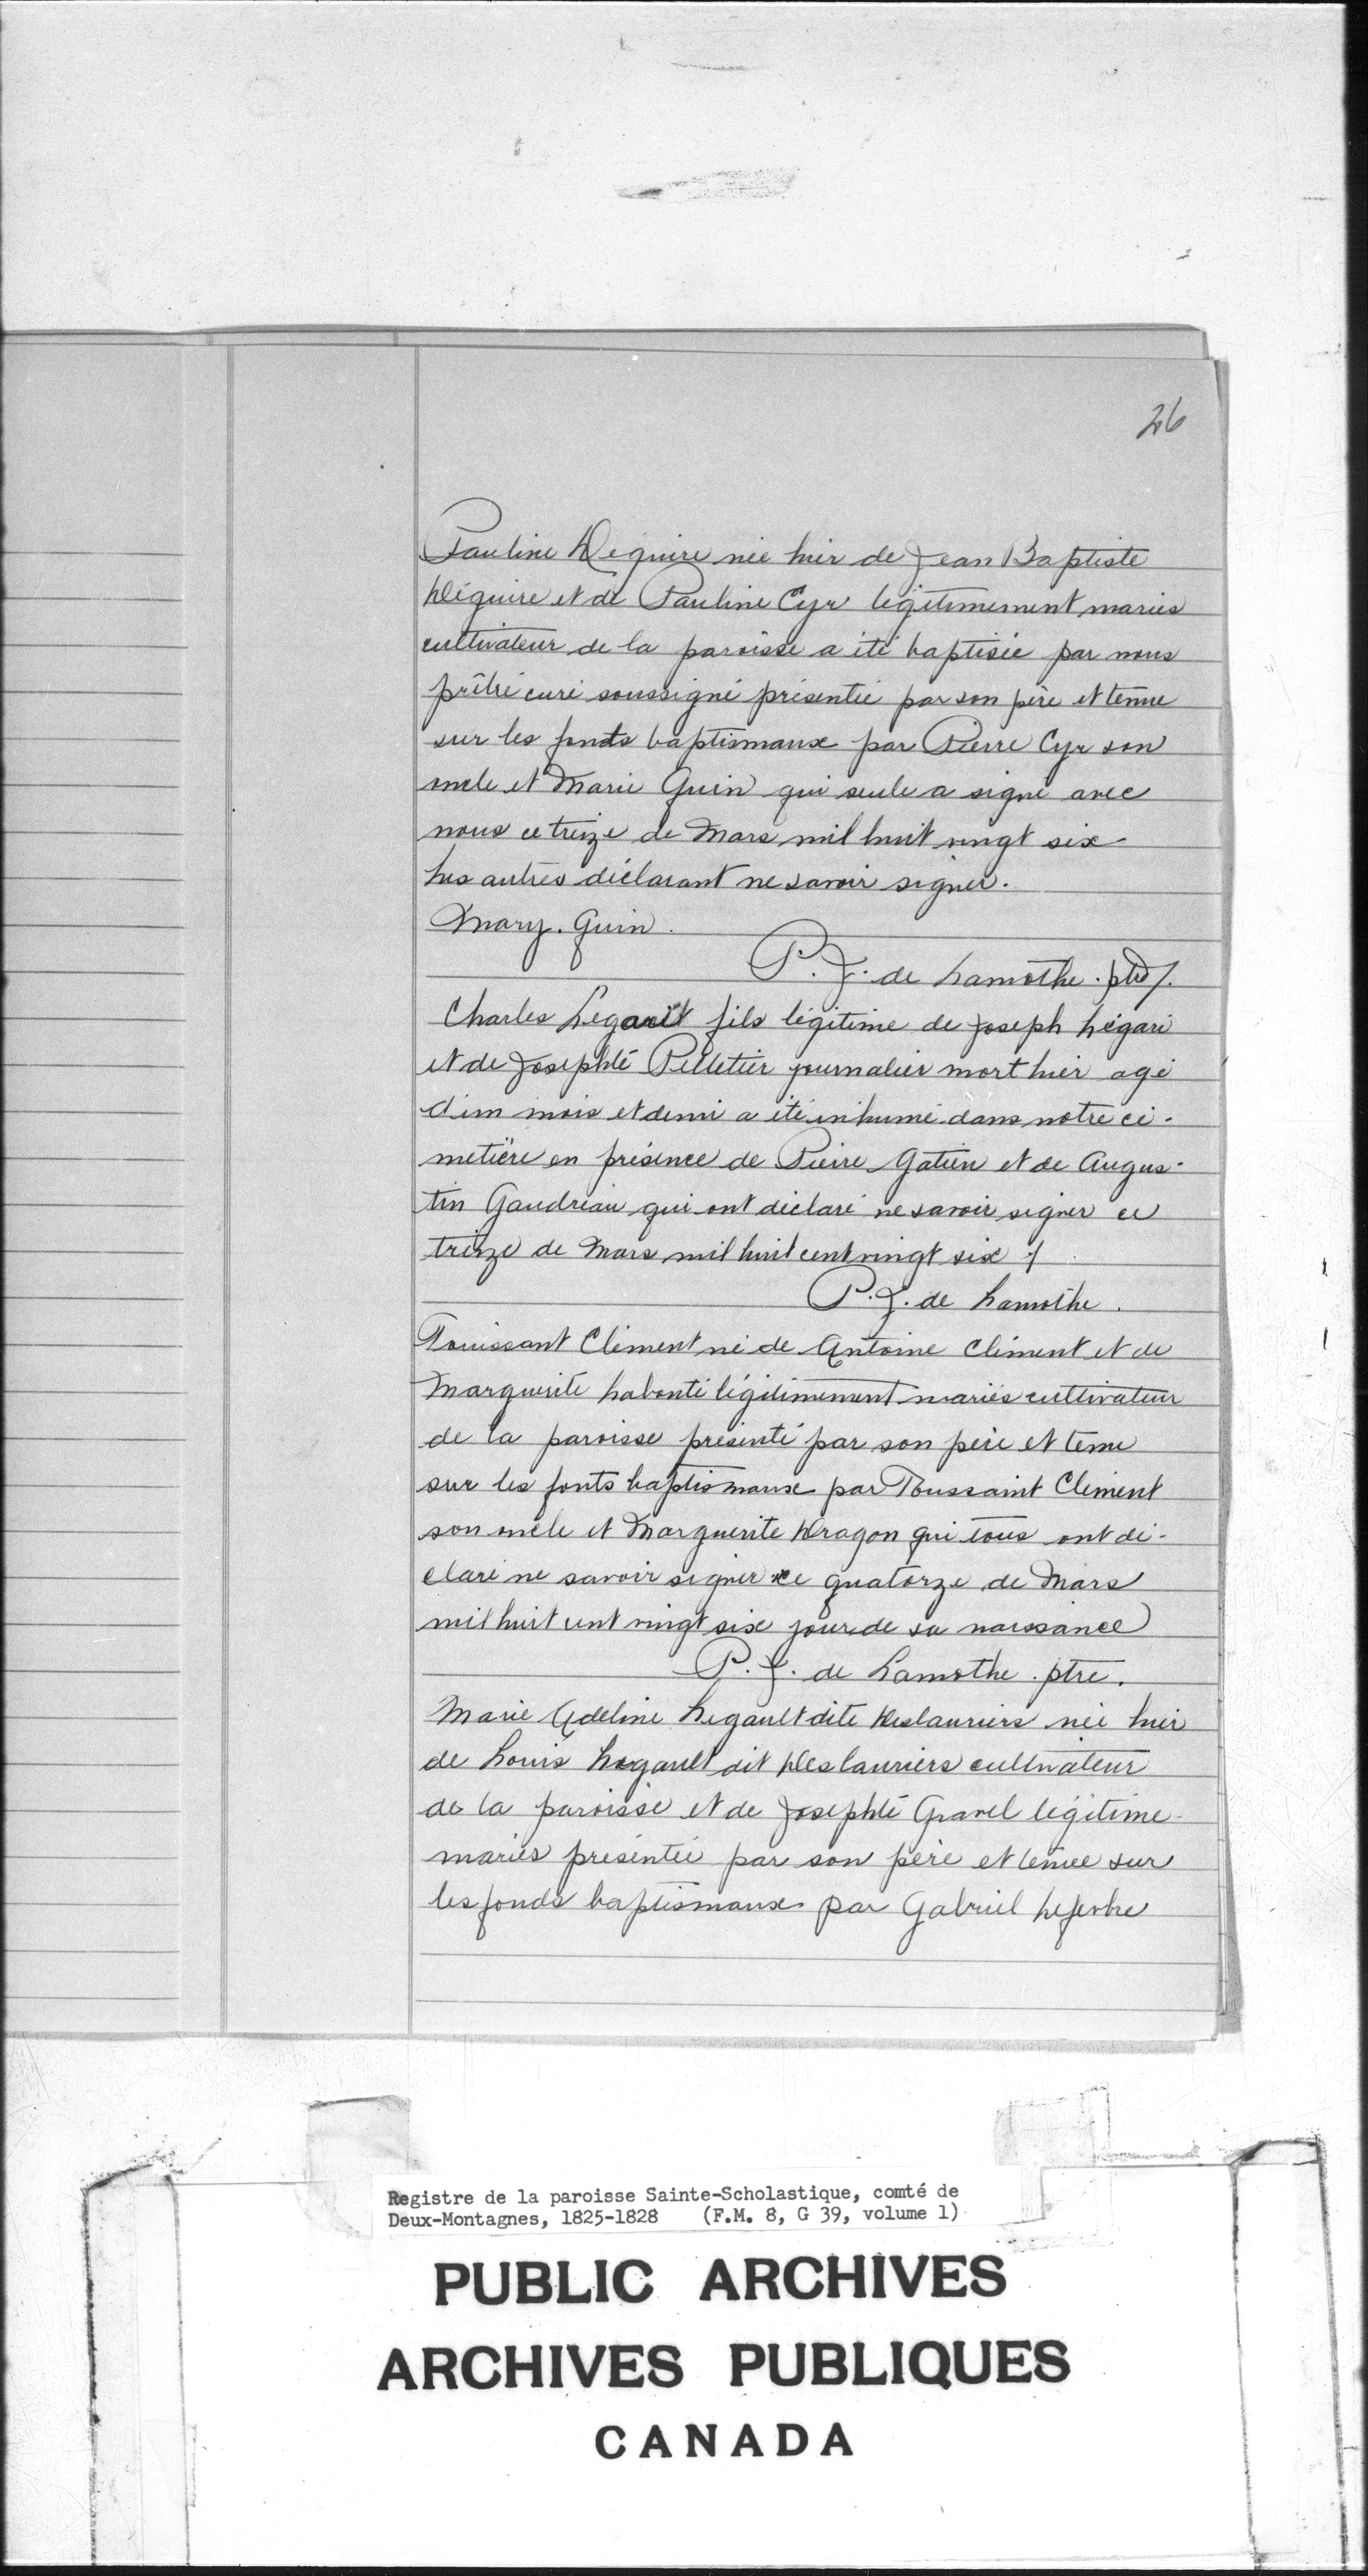 26
Pauline Déquire née hier de Jean Baptiste
Déguire et de Pauline Cyr légitimement mariés
cultivateur de la paroisse a été baptisée par nous
prêtre curé soussigné présentée par son père et tenue
sur les fonts baptismaux par Pierre Cyr son
oncle et Marie Guin qui seule a signé avec
nous ce treize de Mars mil huit vingt six
Les autres déclarant ne savoir signer.
Mary. Guin.
P. J. de Lamothe. ptre/.
Charles Legarit fils légitime de Joseph Légaré
et de Josephté Pelletier journalier mort hier agé
d'un mois et demi a été inhumé dans notre ci-
metière en présence de Pierre Gatien et de Augus-
tin Gaudreau qui ont déclaré ne savoir signer ce
treize de Mars mil huit cent vingt six /
P. J. de Lamothe.
Touissant Clément né de Antoine Clément et de
Marguerite Labonté légitimement mariés cultivateur
de la paroisse présenté par son père et tenu
sur les fonts baptismaux par Toussaint Clément
son oncle et Marguerite Dragon qui tous ont dé-
claré ne savoir signer ce quatorze de Mars
mil huit cent vingt six jour de sa naissance
P. J. de Lamothe. ptre.
Marie Adeline Legault dite Deslauriers née hier
de Louis Legault dit Deslauriers cultivateur
de la paroisse et de Josephté Gravel légitime-
mariés présentée par son père et tenue sur
les fonds baptismaux par Gabriel Lefevbre
Registre de la paroisse Sainte-Scholastique, comté de
Deux-Montagnes, 1825-1828 (F.M. 8, G 39, volume 1)
PUBLIC ARCHIVES
ARCHIVES PUBLIQUES
CANADA